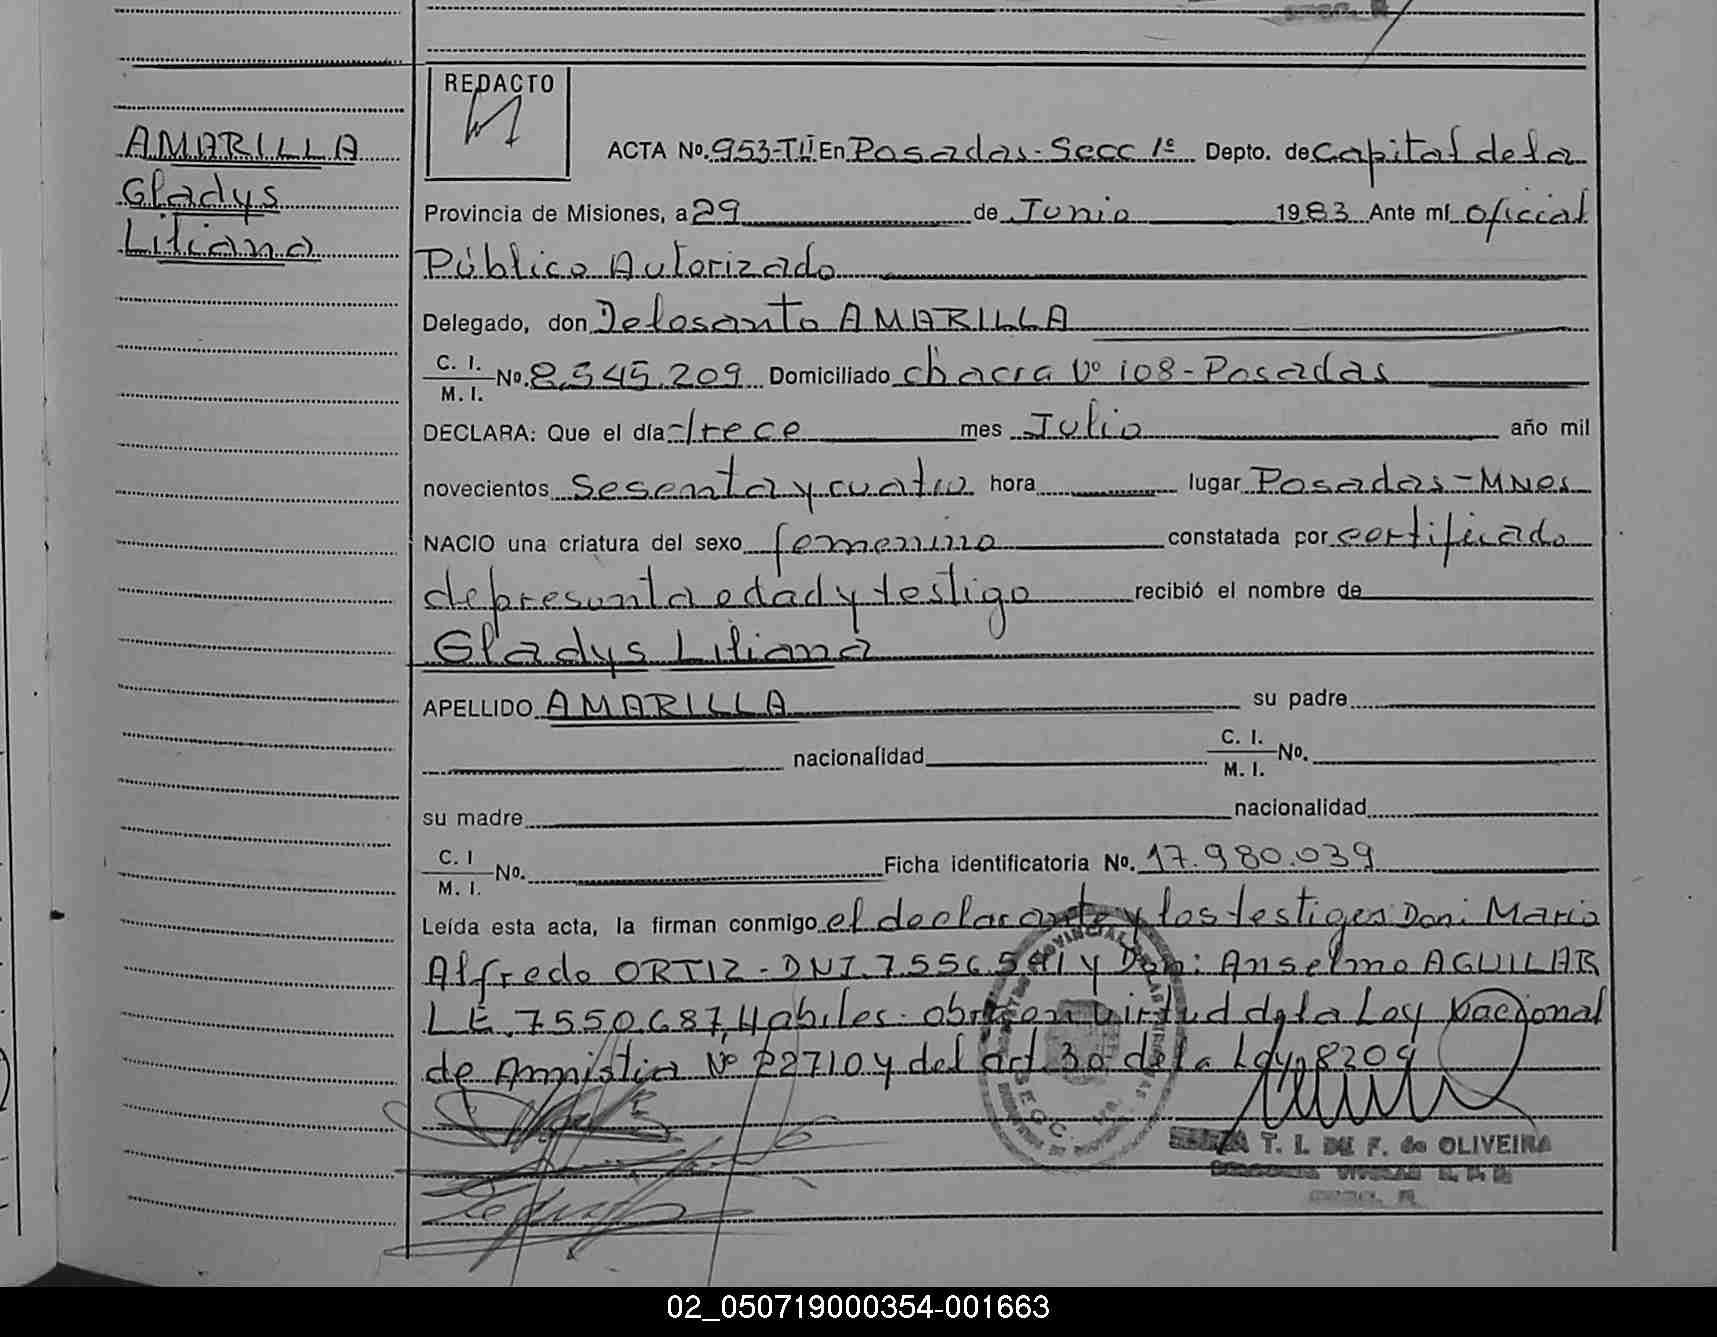 REDACTO
AMARILLA
Gladys
Liliana
ACTA No. 953-TII En Posadas-Secc 1º Depto. de Capital de la
Provincia de Misiones, a 29 de Junio 1983 Ante mí oficial
Público Autorizado
Delegado, don Delosanto AMARILLA
C. I.
M. I. No. 8.545.209 Domiciliado chacra Nº 108-Posadas
DECLARA: Que el día trece mes Julio año mil
novecientos sesenta y cuatro hora lugar Posadas-Mnes
NACIO una criatura del sexo femenino constatada por certificado
de presunta edad y testigo recibió el nombre de
Gladys Liliana
APELLIDO AMARILLA su padre
nacionalidad C. I.
M. I. No.
su madre nacionalidad
C. I
M. I. No. Ficha identificatoria No. 17.980.039
Leída esta acta, la firman conmigo el declarante y los testigos Don: Mario
Alfredo ORTIZ-DNI. y Don: Anselmo AGUILAR
LE. 7550687, Habiles. obra en virtud de la Ley Nacional
de Amnistia Nº 22710 y del art. 30 de la Ley 8204
T. I. DE F. de OLIVEIRA
02_050719000354-001663